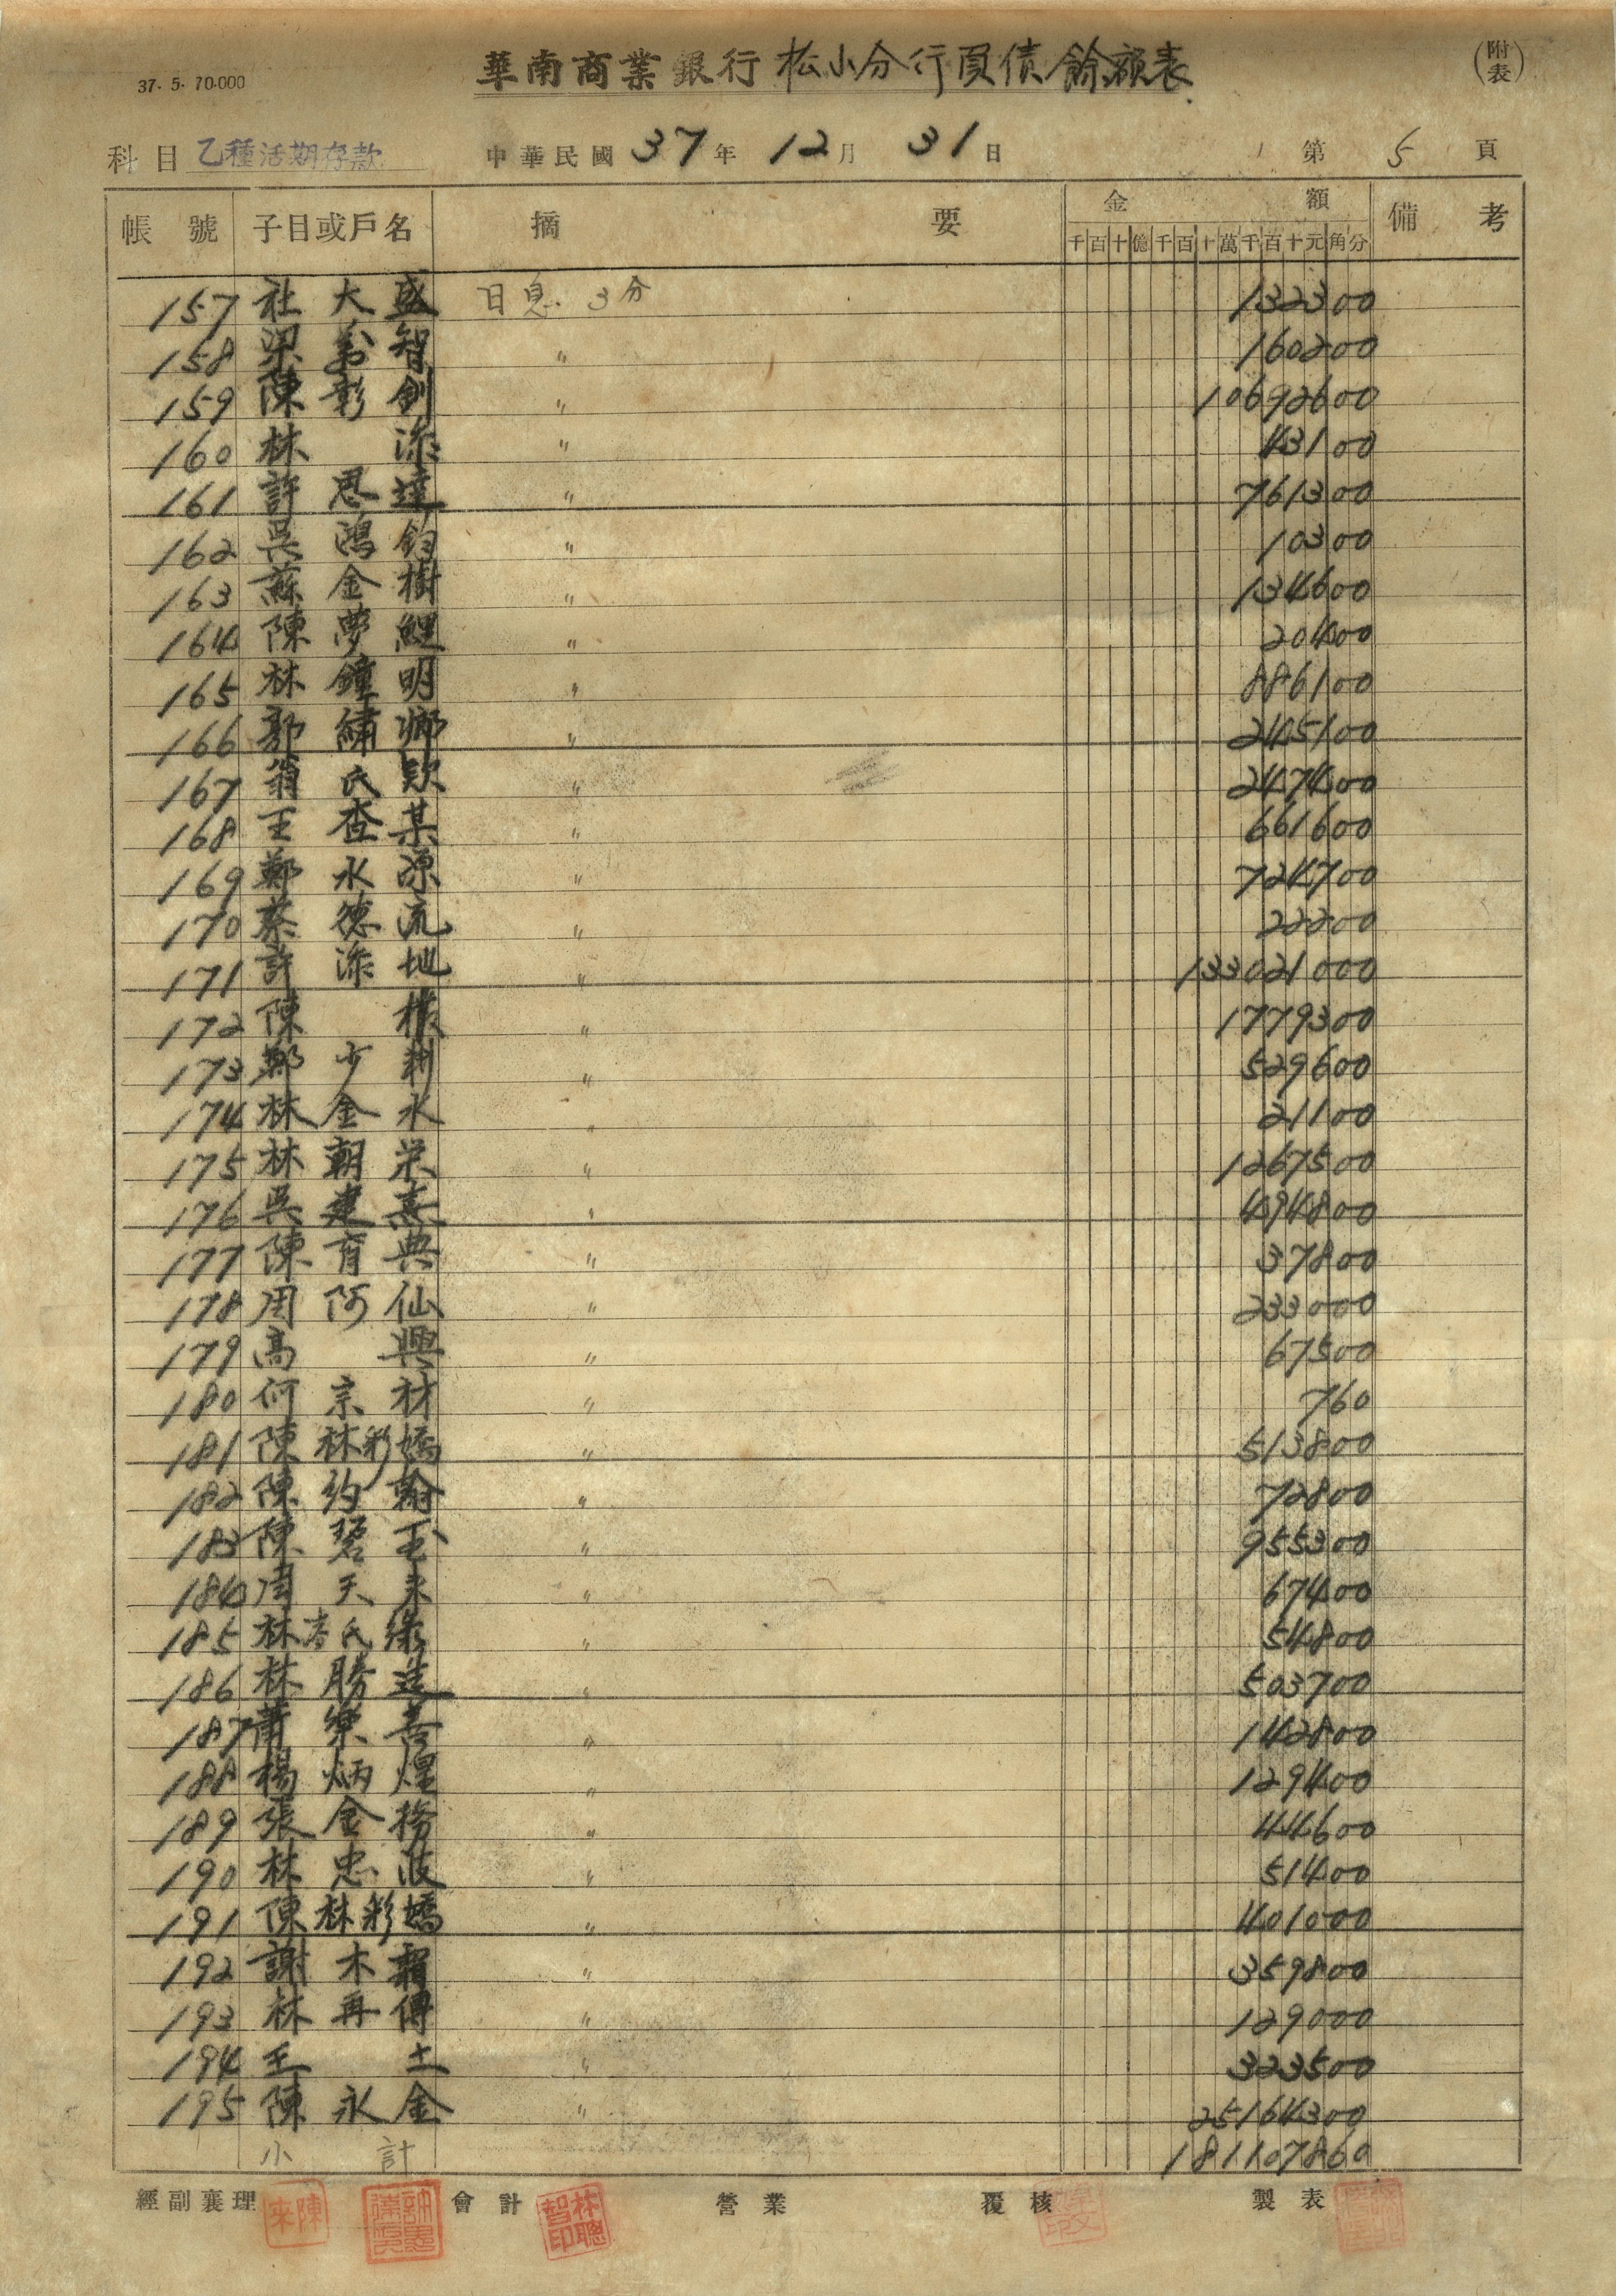 37.5.70.000
華南商業銀行松山分行負債餘額表
(附表)
科目 乙種活期存款 中華民國 37 年 12 月 31 日 第 5 頁
帳號 子目或戶名 摘要 金額 備考
千百十億千百十萬千百十元角分
157 社大盛 日息.3分 132300
158 梁 智 〃 160200
159 陳彰釗 〃 10692600
160 林添 〃 43100
161 許恩達 〃 761300
162 吳鴻鈞 〃 10300
163 蘇金樹 〃 134600
164 陳夢鯉 〃 20400
165 林鐘明 〃 886100
166 郭繡鄉 〃 245100
167 翁氏欵 〃 247400
168 王查某 〃 661600
169 鄭水源 〃 724700
170 蔡德流 〃 22200
171 許添地 〃 133021000
172 陳 〃 1779300
173 鄭少耕 〃 529600
174 林金水 〃 21100
175 林朝栄 〃 1267500
176 吳建熹 〃 494800
177 陳育典 〃 37800
178 周阿仙 〃 233000
179 高興 〃 67500
180 何宗材 〃 760
181 陳林彩嬌 〃 513800
182 陳約翰 〃 72800
183 陳碧玉 〃 955300
184 周天來 〃 67400
185 林李氏緞 〃 54800
186 林勝造 〃 503700
187 蕭樂善 〃 142800
188 楊炳煌 〃 129400
189 張金務 〃 44600
190 林忠波 〃 51400
191 陳林彩嬌 〃 401000
192 謝木 〃 359800
193 林再傳 〃 129000
194 王土 〃 323500
195 陳永金 〃 25164300
小計 181107860
經副襄理 陳來 會計 林聰智印 營業 覆核 製表